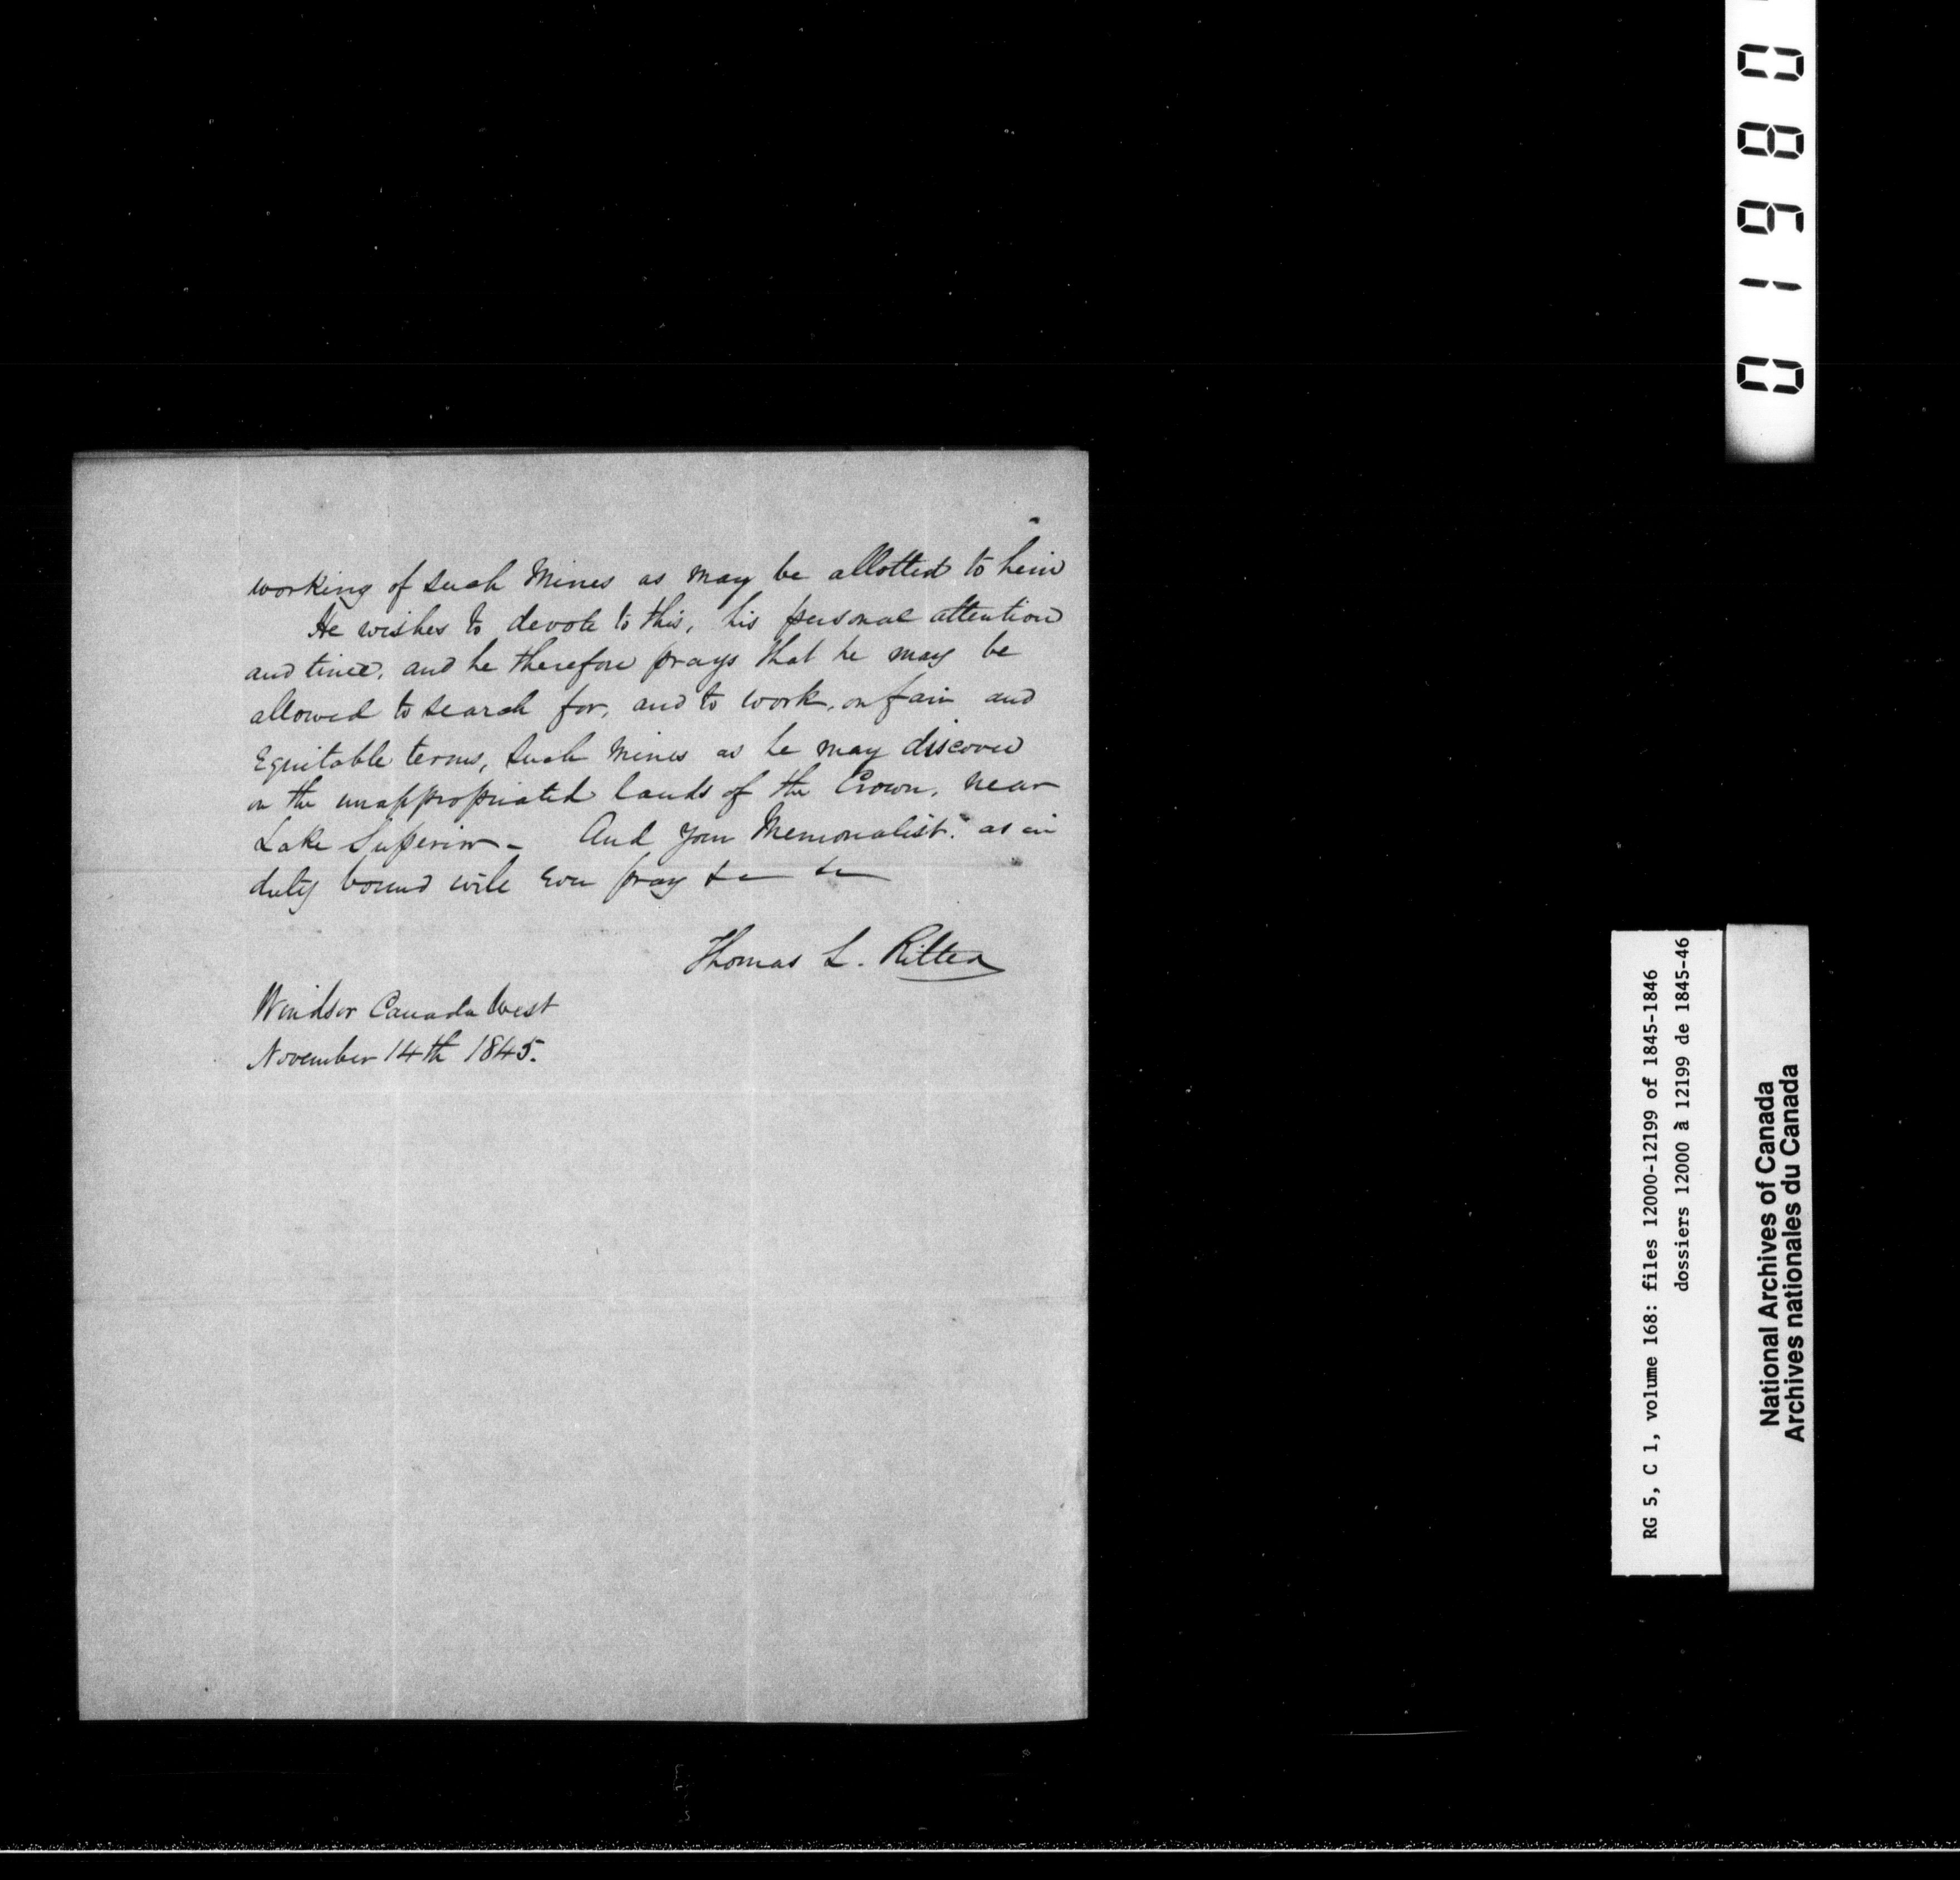 working of such Mines as may be allotted to him
He wishes to devote to this, his personal attention
and time, and he therefore prays that he may be
allowed to search for, and to work, on fair and
Equitable terms, such Mines as he may discover
on the unappropriated lands of the Crown, near
Lake Superior - And your Memorialist. as in
duty bound will Ever pray &c &c
Thomas L. Ritter
Windsor Canada West
November 14th 1845.
01680
RG 5, C 1, volume 168: files 12000-12199 of 1845-1846
dossiers 12000 à 12199 de 1845-46
National Archives of Canada
Archives nationales du Canada